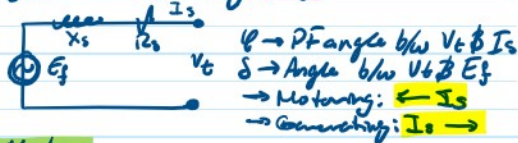 Xs Rs Is
Ef Vt
φ → PF angle b/w Vt & Is
δ → Angle b/w Vt & Ef
→ Motoring: ← Is
→ Generating: Is →